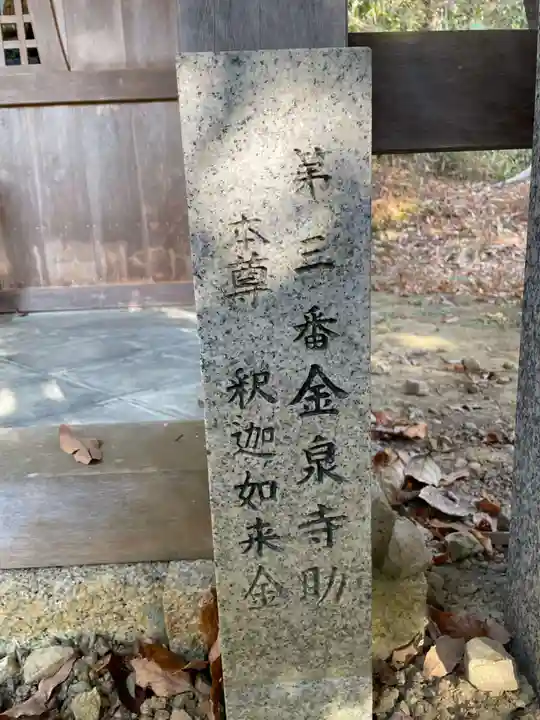 第三番金泉寺
本尊 釈迦如来